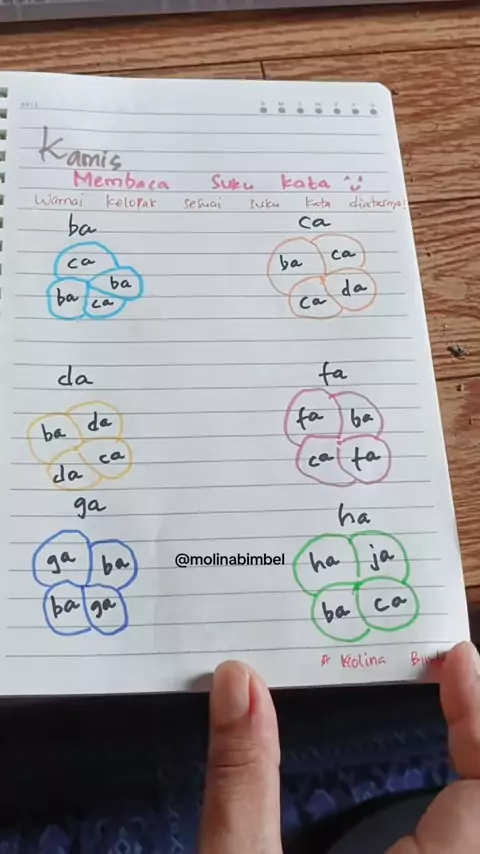 Kamis
Membaca Suku kata
Warnai kelopak sesuai suku kata diatasnya!
ba ca
ca
ba
ba
ca
ba
ca
ca
da
da fa
ba
da
da
ca
fa
ba
ca
fa
ga ha
ga
ba
ba
ga
ha
ja
ba
ca
@molinabimbel